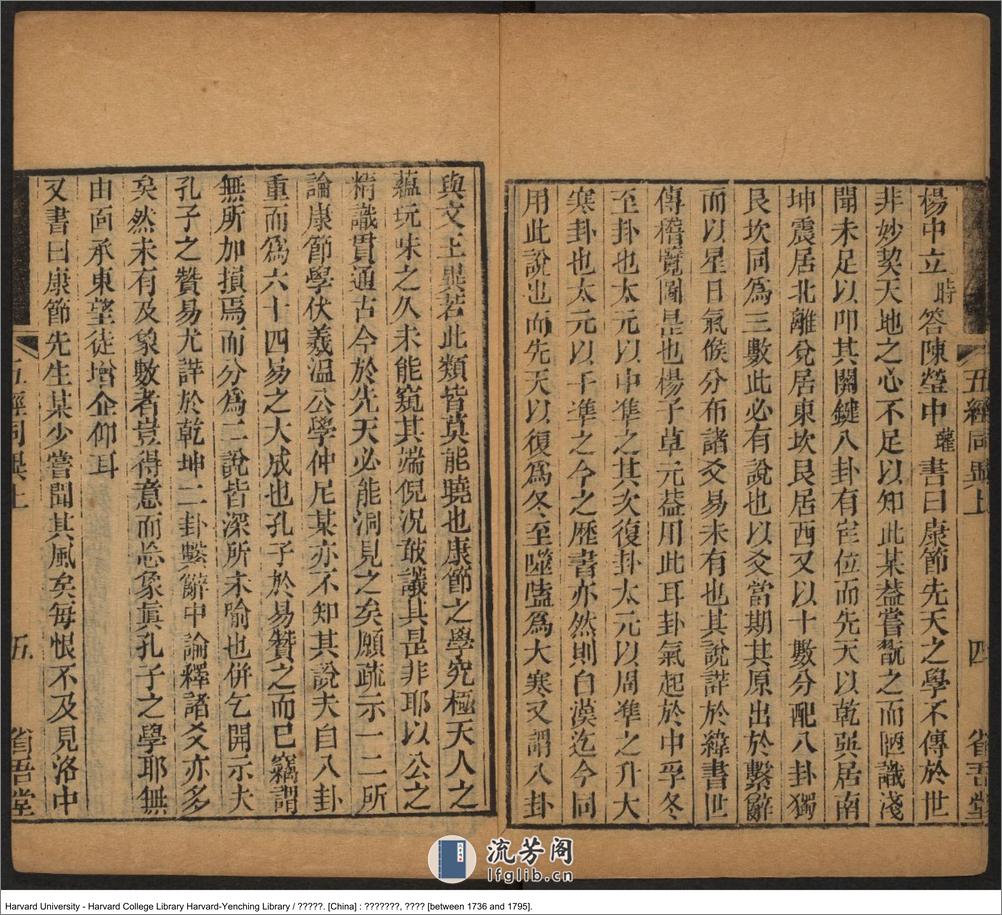 五經同異上
四
省吾堂
楊中立時答陳瑩中瓘書曰康節先天之學不傳於世
非妙契天地之心不足以知此某葢嘗翫之而陋識淺
聞未足以叩其關鍵八卦有定位而先天以乾巽居南
坤震居北離兌居東坎艮居西又以十數分配八卦獨
艮坎同爲三數此必有說也以爻當期其原出於繫辭
而以星日氣候分布諸爻易未有也其說詳於緯書世
傳稽覽圖是也楊子草元葢用此耳卦氣起於中孚冬
至卦也太元以中準之其次復卦太元以周準之升大
寒卦也太元以干準之今之歷書亦然則自漢迄今同
用此說也而先天以復爲冬至噬嗑爲大寒又謂八卦
與文王異若此類皆莫能曉也康節之學究極天人之
蘊玩味之久未能窺其端倪况敢議其是非耶以公之
精識貫通古今於先天必能洞見之矣願疏示一二所
論康節學伏羲温公學仲尼某亦不知其說夫自八卦
重而爲六十四易之大成也孔子於易贊之而已竊謂
無所加損焉而分爲二說皆深所未喻也併乞開示大
孔子之贊易尤詳於乾坤二卦繫辭中論釋諸爻亦多
矣然未有及象數者豈得意而忘象眞孔子之學耶無
由面承東望徒增企仰耳
又書曰康節先生某少嘗聞其風矣每恨不及見洛中
五經同異上
五
省吾堂
流芳阁
lfglib.cn
Harvard University - Harvard College Library Harvard-Yenching Library / ?????. [China] : ???????, ???? [between 1736 and 1795].